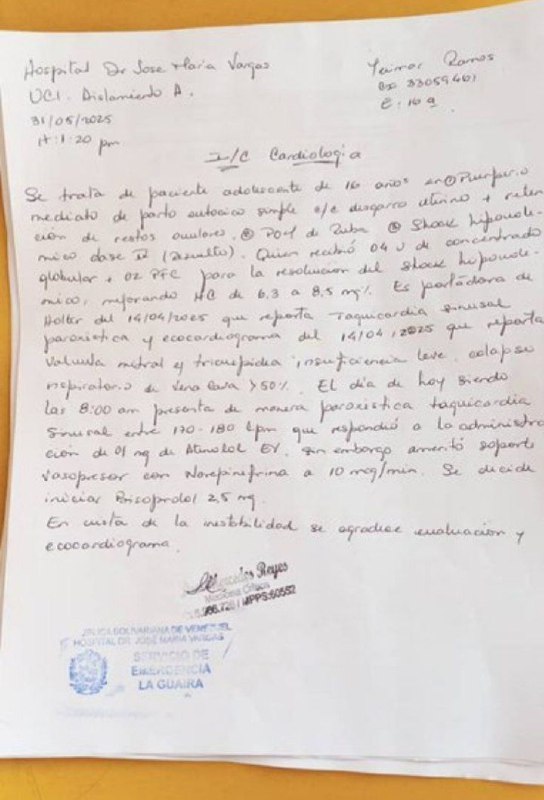 Hospital Dr Jose Maria Vargas
UCI. Aislamiento A.
31/05/2025
H: 1:20 pm
Yeimar Ramos
33059461
E: 16 a
I/C Cardiologia
Se trata de paciente adolescente de 16 años en ① Puerperio
mediato de parto eutocico simple c/c desgarro uterino + reten
ción de restos ovulares. ② POM de Zuba ③ Shock hipovole-
mico clase IV (Resuelto). Quien recibió 04 U de concentrado
globular + 02 PFC para la resolución del Shock hipovole-
mico, mejorando HC de 6.3 a 8,5 mg%. Es portadora de
Holter del 14/04/2025 que reporta Taquicardia sinusal
paroxistica y ecocardiograma del 14/04/2025 que reporta
Valvula mitral y tricuspidea insuficiencia leve. colapso
inspiratorio de Vena Cava >50%. El día de hoy siendo
las 8:00 am presenta de manera paroxistica taquicardia
Sinusal entre 170-180 lpm que respondió a la administra
ción de 01 mg de Atenolol EV. Sin embargo ameritó soporte
vasopresor con Norepinefrina a 10 mcg/min. Se decide
iniciar Bisoprolol 2,5 mg.
En vista de la inestabilidad se agradece evaluación y
ecocardiograma.
Reyes
Medicina Crítica
MPPS:60552
BOLIVARIANA DE VENEZUEL
HOSPITAL DR. JOSÉ MARIA VARGAS
SERVICIO DE
EMERGENCIA
LA GUAIRA